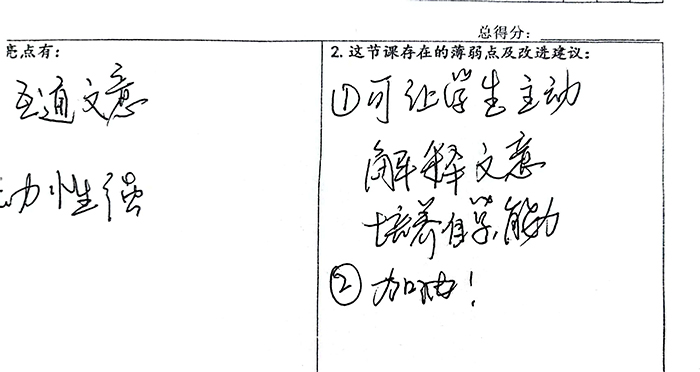 总得分：
亮点有：
疏通文意
动性强
2. 这节课存在的薄弱点及改进建议：
①可让学生主动
解释文意
培养自学能力
②加油！